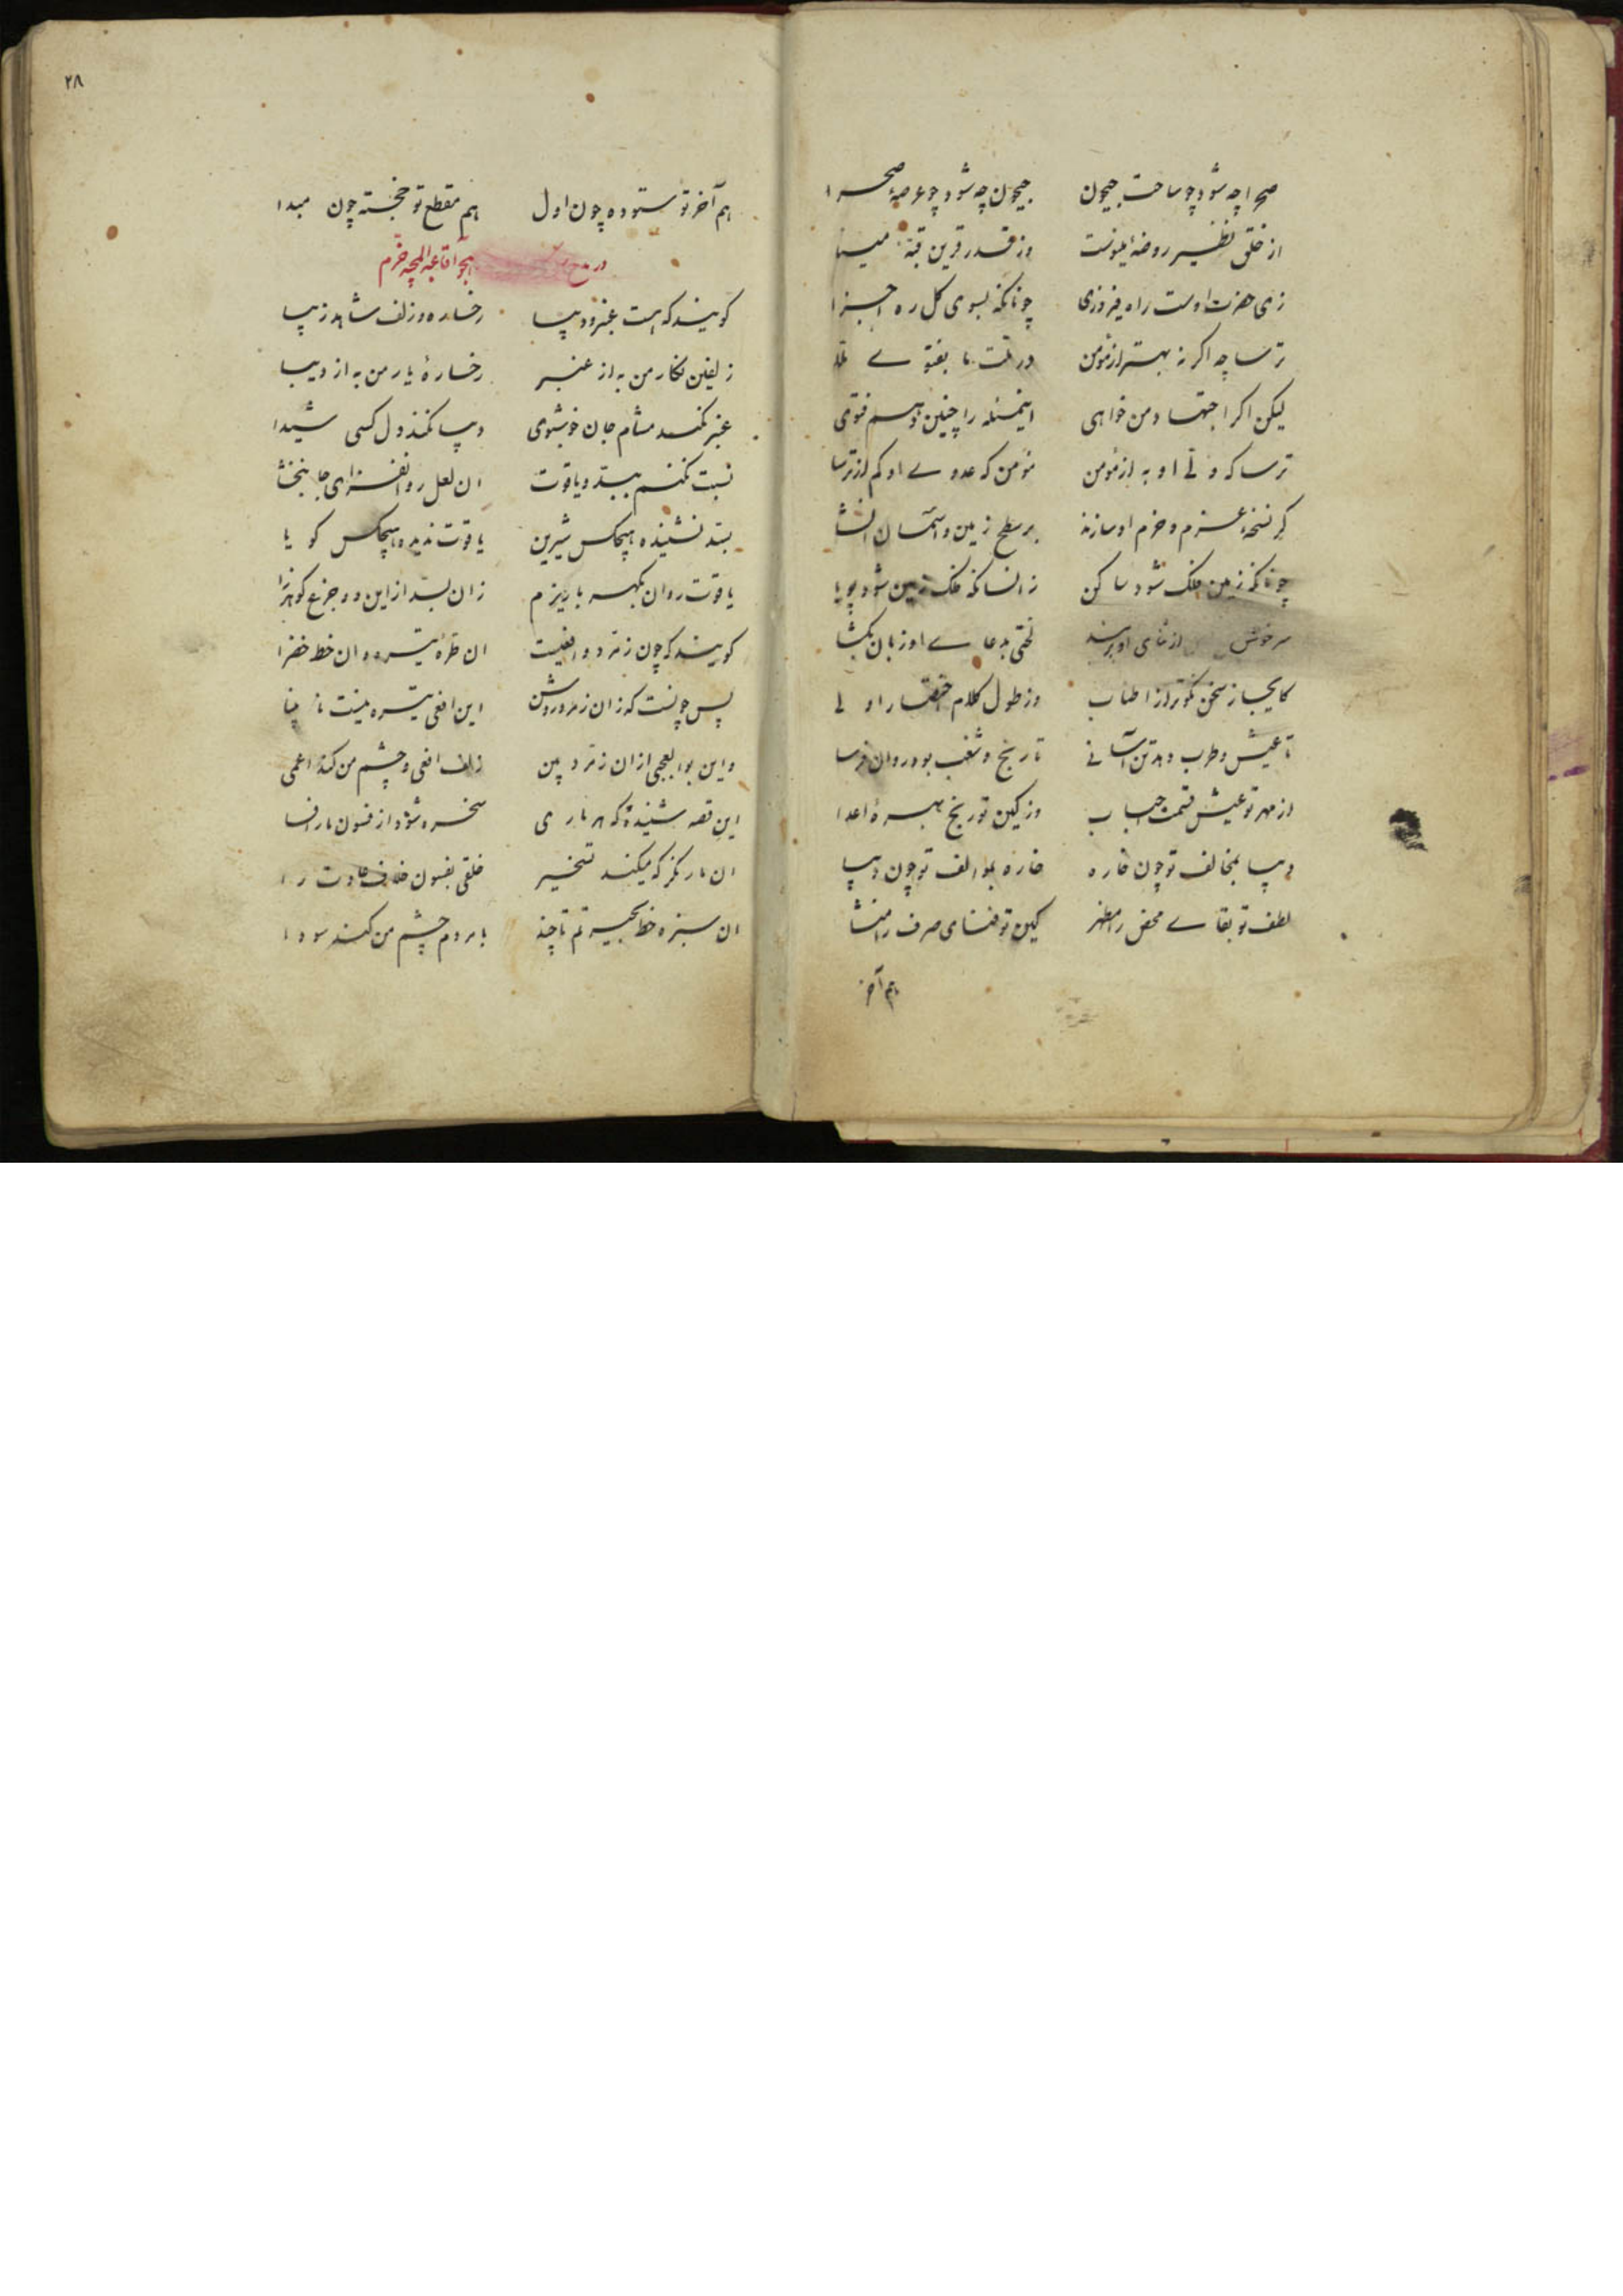 صحرا چه شود چو ساحت جیحون جیحون چه شود چو عرصهٔ صحرا
از خلق نظیر روضهٔ مینوست وز قدر قرین قبهٔ مینا
زی حضرت اوست راه فیروزی چونانکه بسوی کل ره اجزا
ترسا چه اکر نه بهتر از مؤمن در ملت ما بفتوی
لیکن اکر اجتهاد من خواهی اینمسئله را چنین دهم فتوی
ترسا که ولی او به از مؤمن مؤمن که عدوی او کم از ترسا
کر نسخهٔ عزم و حزم او سازند بر سطح زمین و آسمان انشا
چونانکه زمین فلک شود ساکن زانسانکه فلک زمین شود پویا
سرخوش از ثنای او لختی بدعای او زبان بکشا
کایجاز سخن نکوتر از اطناب وز طول کلام اختصار اولی
تا عیش و طرب دهد تن آسانی تا رنج و شغب بود روان فرسا
از مهر تو عیش قسمت احباب وز کین تو رنج بهرهٔ اعدا
دیبا بمخالف تو چون خاره خاره بموالف تو چون دیبا
لطف تو بقای محض را مظهر کین تو فنای صرف را منشا
هم آخر
۲۸
هم آخر تو ستوده چون اول هم مقطع تو خجسته چون مبدا
در مدح
کویند که هست عنبر و دیبا رخساره و زلف شاهد زیبا
زلفین نکار من به از عنبر رخسارهٔ یار من به از دیبا
عنبر نکند مشام جان خوشبوی دیبا نکند دل کسی شیدا
نسبت نکنم ببسد و یاقوت ان لعل روانفزای جانبخشا
بسد نشنیده هیچکس شیرین یاقوت ندیده هیچکس کویا
یاقوت روان بکهربا ریزم زان بسد از این دو جزع کوهرزا
کویند که چون زمرد و افعیست ان طرهٔ تیره و ان خط خضرا
پس چونست که زان زمرد روشن این افعی تیره نیست نابینا
و این بوالعجبی از ان زمرد بین زلف افعی و چشم من کند اعمی
این قصه شنیدهٔ که هر ماری سخره شود از فسون مار افسا
ان مار نکر که میکند تسخیر خلقی بفسون خلاف عادت را
ان سبزه خط بحیرتم تا چند با مردم چشم من کند سودا